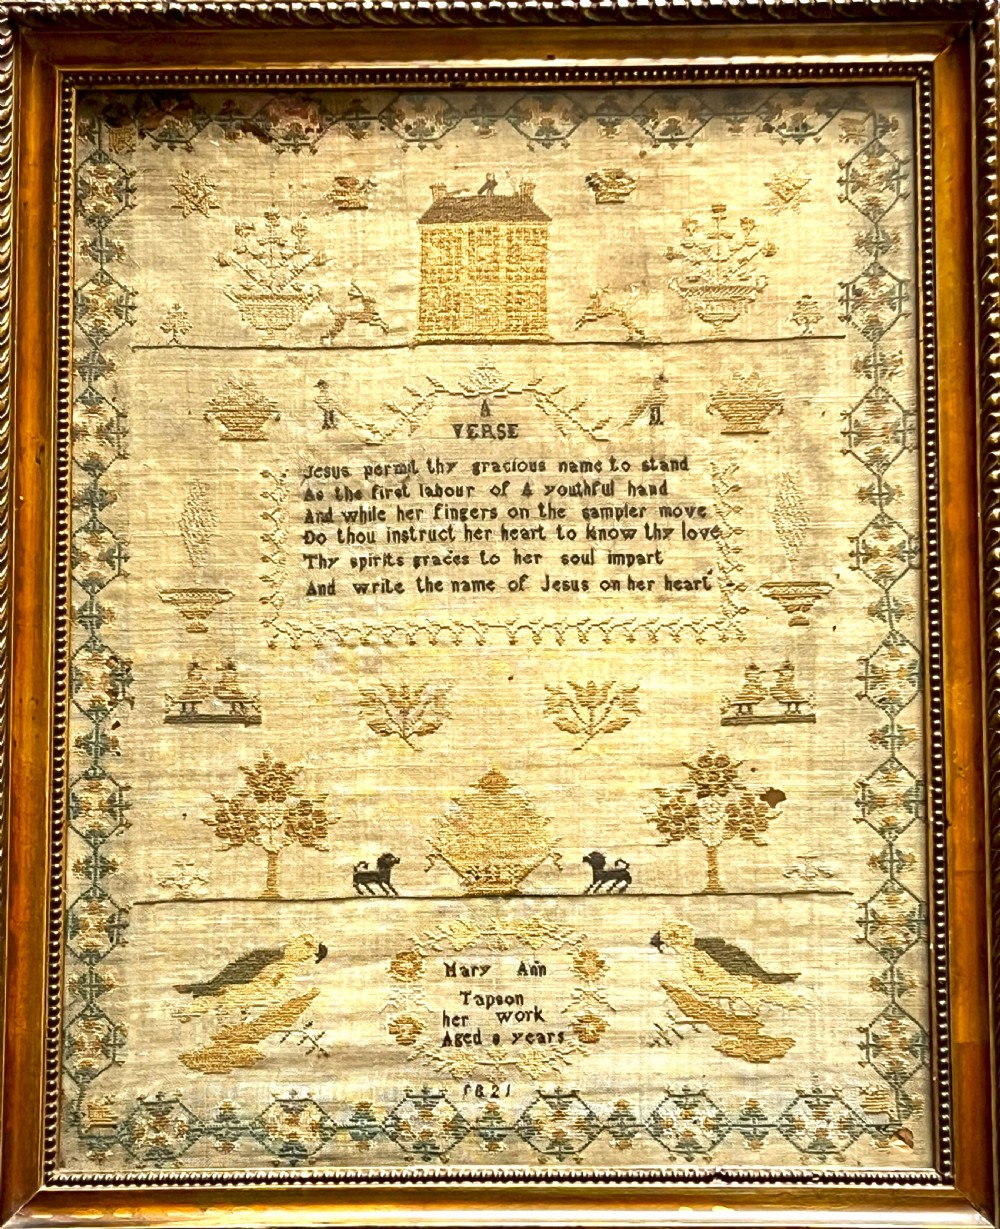 A
VERSE
Jesus permit thy gracious name to stand
As the first labour of A youthful hand
And while her fingers on the sampler move
Do thou instruct her heart to know thy love
Thy spirits graces to her soul impart
And write the name of Jesus on her heart
Mary Ann
Tapson
her work
Aged 8 years
1821